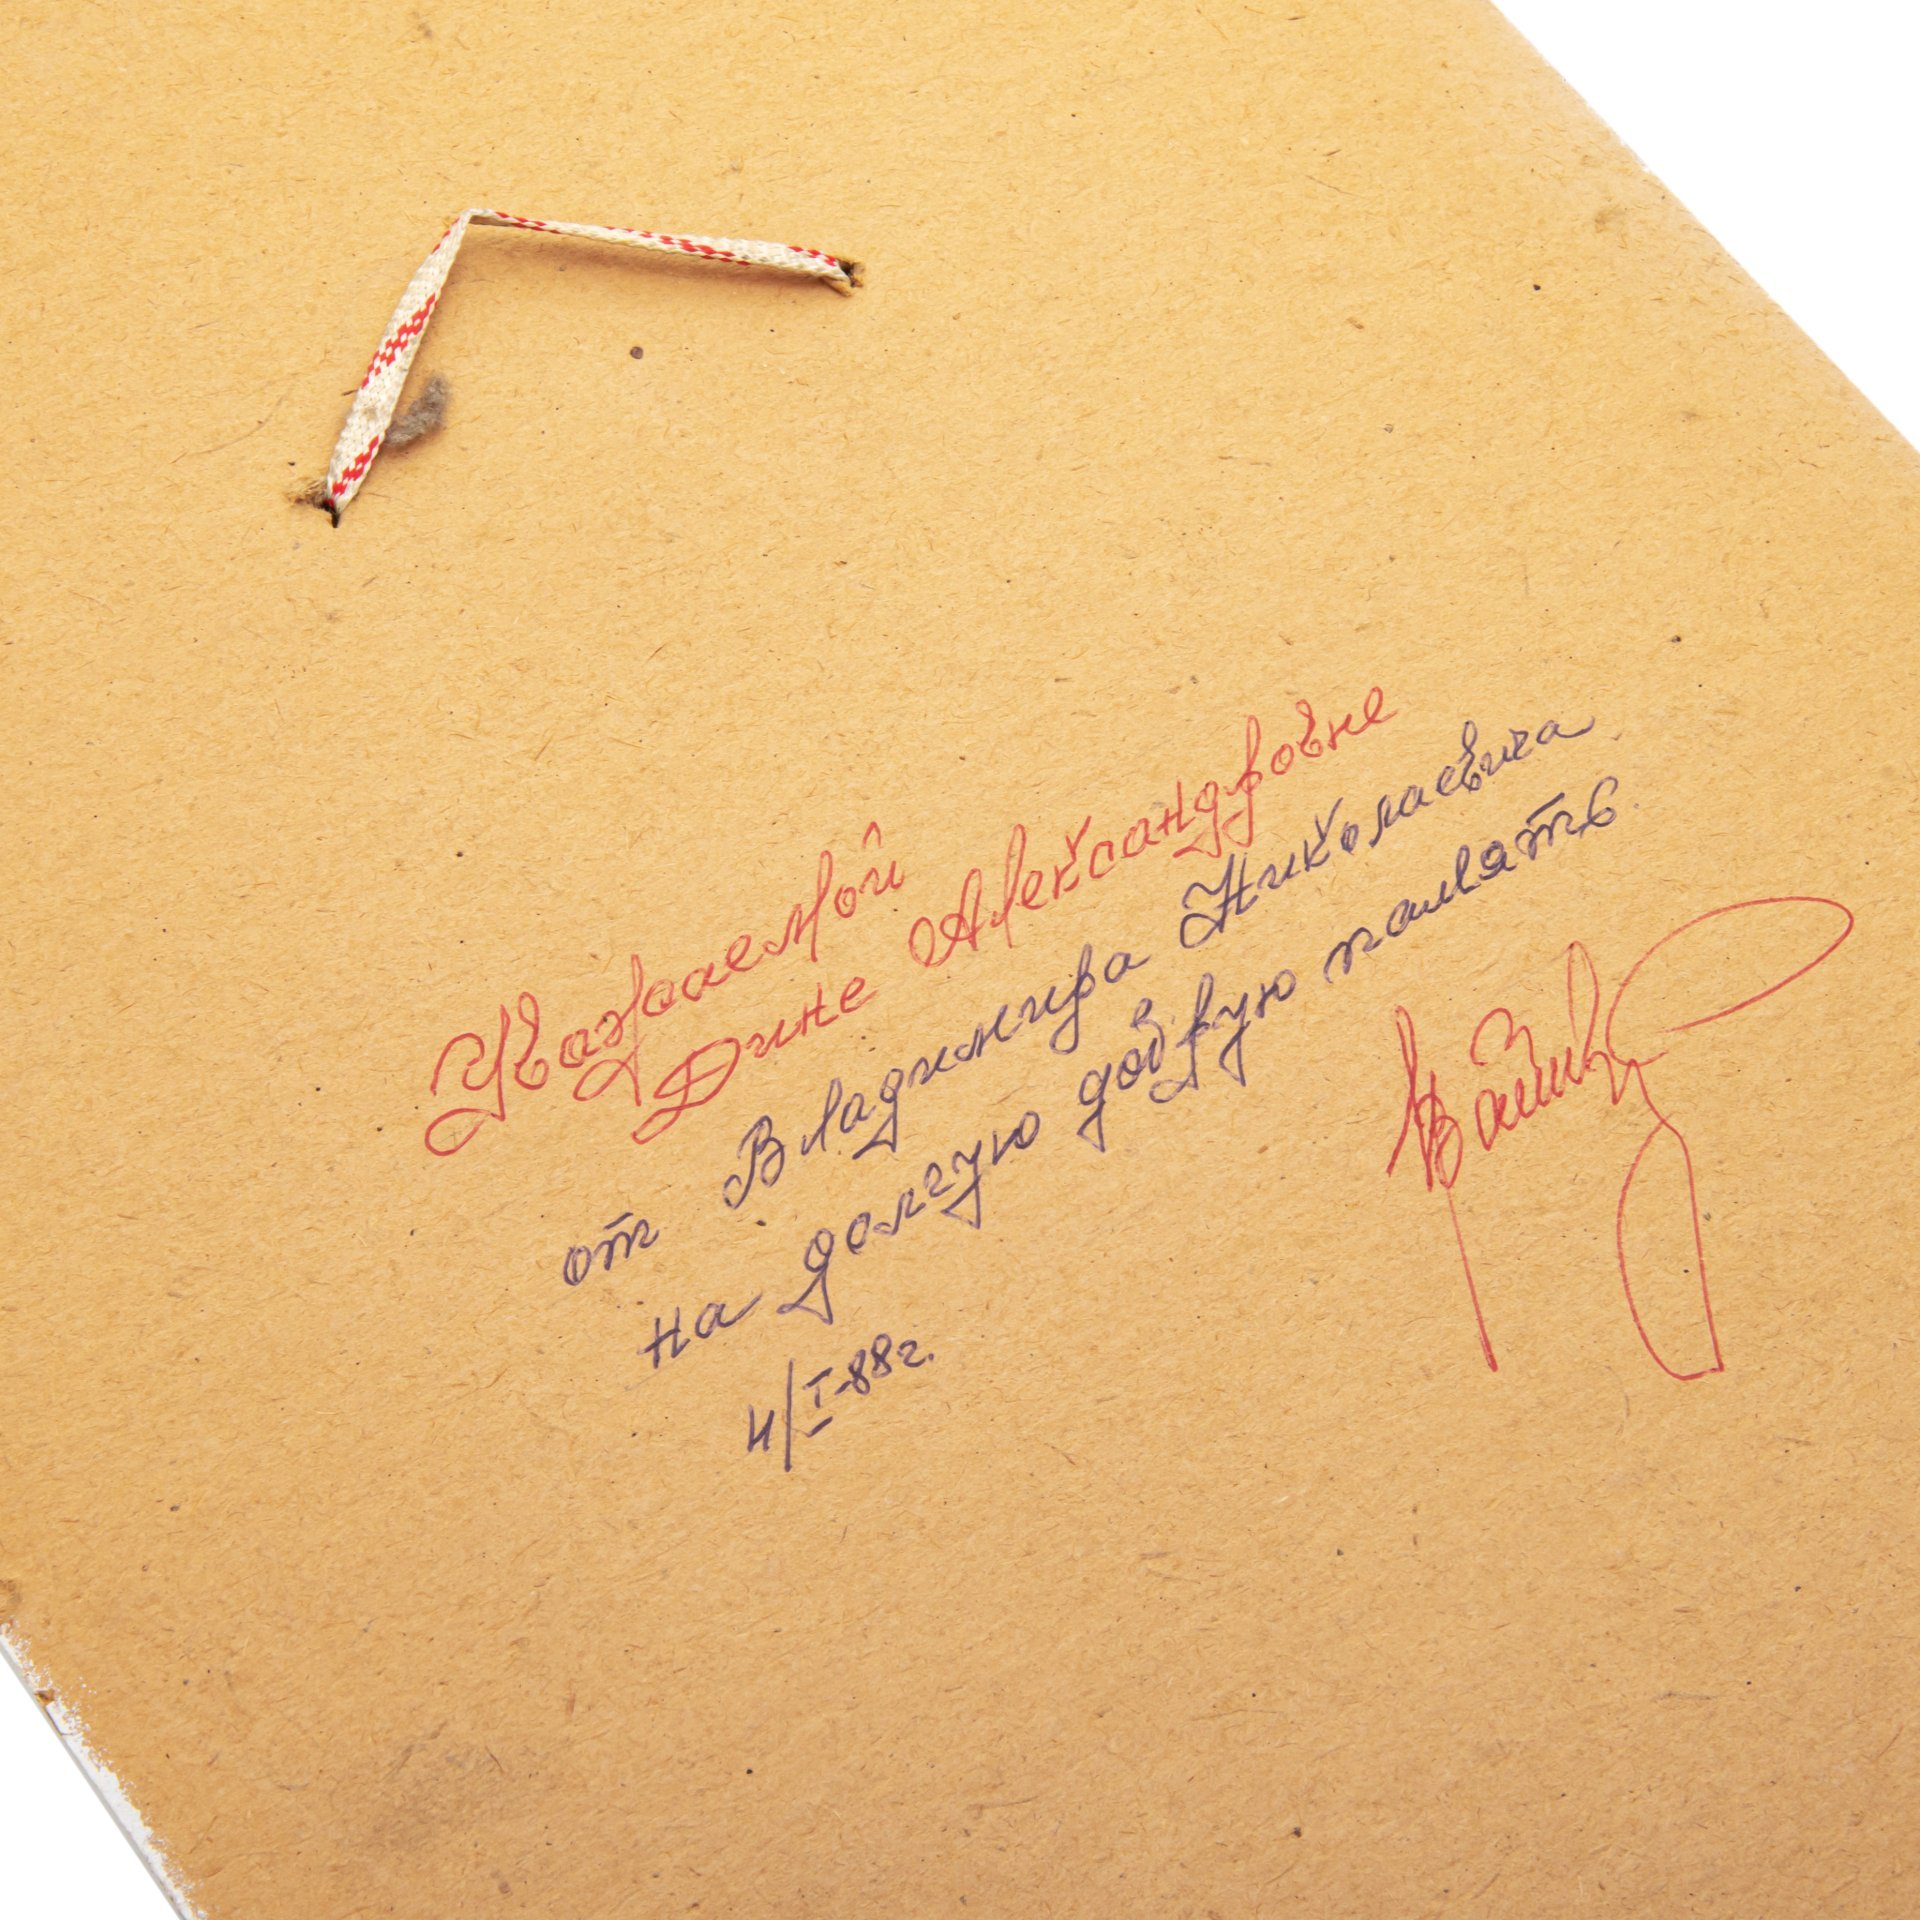 Уважаемой
Дине Александровне
от Владимира Николаевича
на долгую добрую память.
4/I-88г.